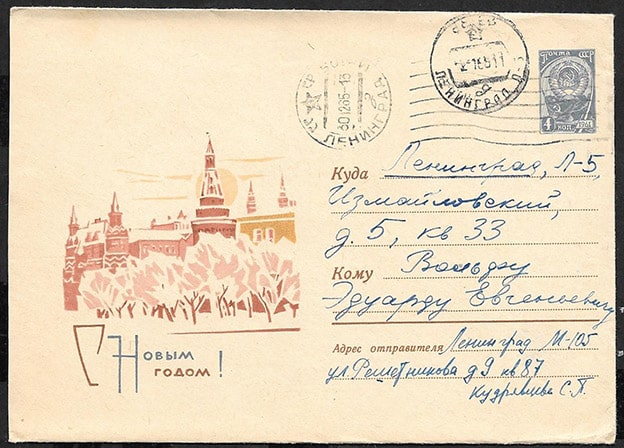 ПОЧТА СССР
4 КОП 1961
ЛЕНИНГРАД
ЛЕНИНГРАД
Куда Ленинград, Л-5,
Измайловский,
д. 5, кв 33
Кому Вольфу
Эдуарду Евгеньевичу
Адрес отправителя Ленинград М-105
ул. Решетникова д 9 кв 87
Кудрявцева С.П.
С Новым
годом!